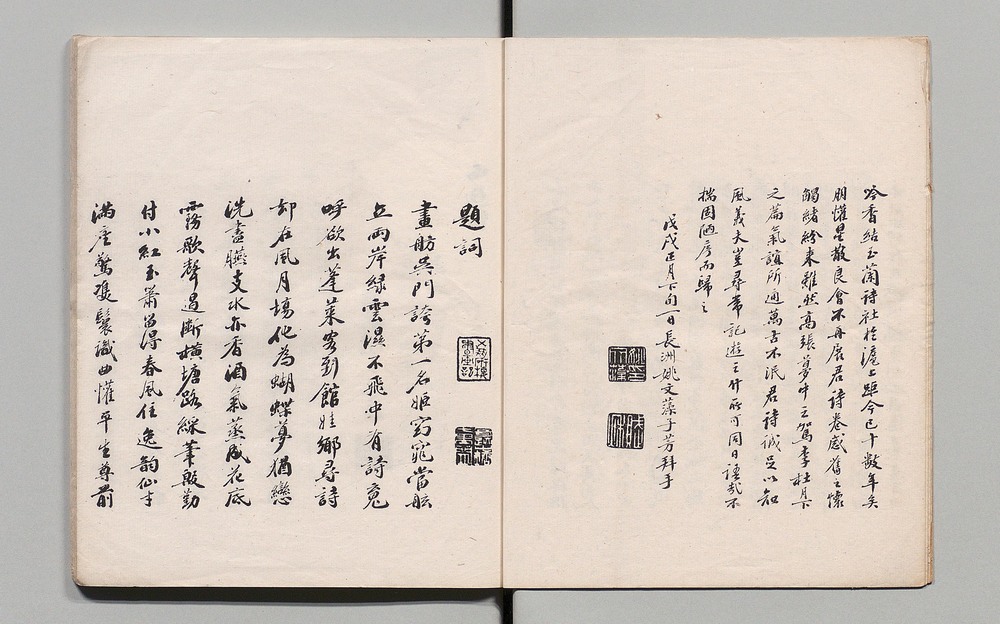 吟香結玉蘭詩社於滬上距今已十數年矣
朋懽星散良會不再展君詩卷感舊之懷
觸緒紛來雖然高張夢中之駕李杜月下
之篇氣誼所通萬古不泯君詩誠足以知
風義夫豈尋常記遊之作所可同日語哉不
揣固陋序而歸之
戊戌正月下旬一日長洲姚文藻子芳拜手
題詞
畫舫吳門誇第一名姬窈窕當舷
立兩岸綠雲濕不飛中有詩魂
呼欲出蓬萊客到館娃鄉尋詩
卻在風月場化為蝴蝶夢猶戀
洗盡臙支水亦香酒氣蒸成花底
霧歌聲過斷橫塘路綵筆殷勤
付小紅玉簫留得春風住逸韻仙才
滿座驚鬟識曲懽平生尊前